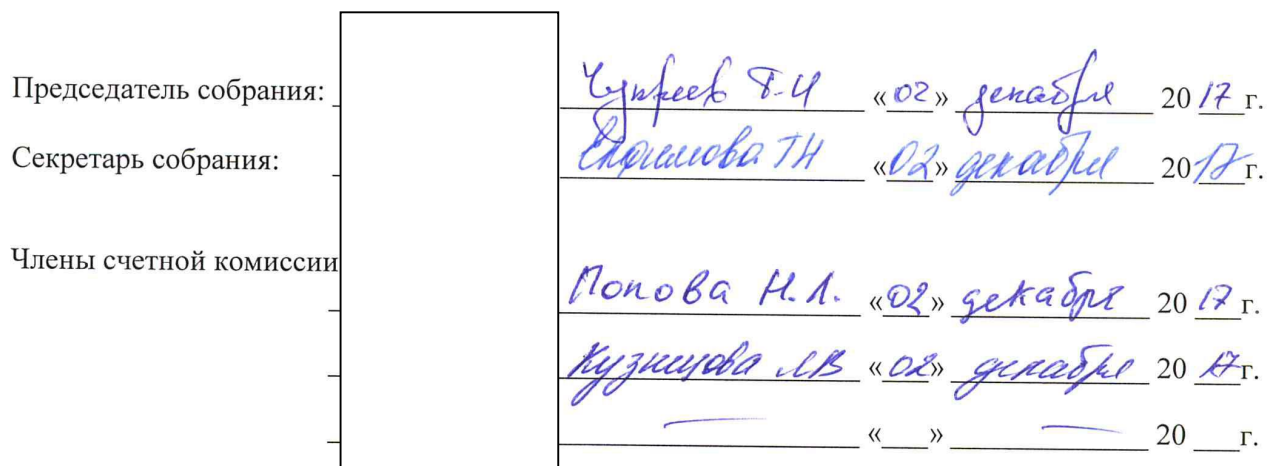 Председатель собрания: Чупреев Т.И «02» декабря 2017 г.
Секретарь собрания: Ефимова ТН «02» декабря 2017 г.
Члены счетной комиссии
Попова Н.Л. «02» декабря 2017 г.
Кузнецова ЛВ «02» декабря 2017 г.
— «___» — 20 ___ г.